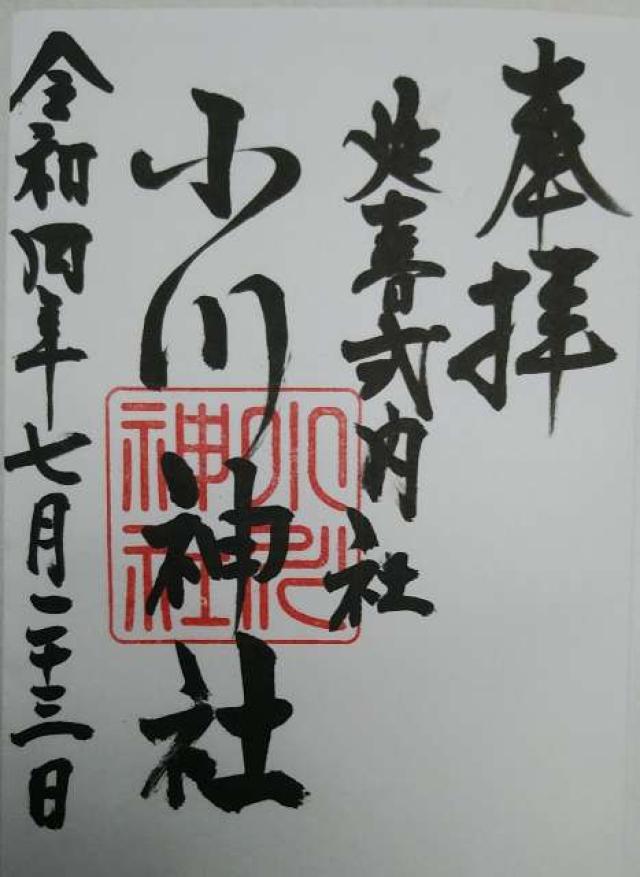 奉拝
延喜式内社
小川神社
小川神社
令和四年七月二十三日